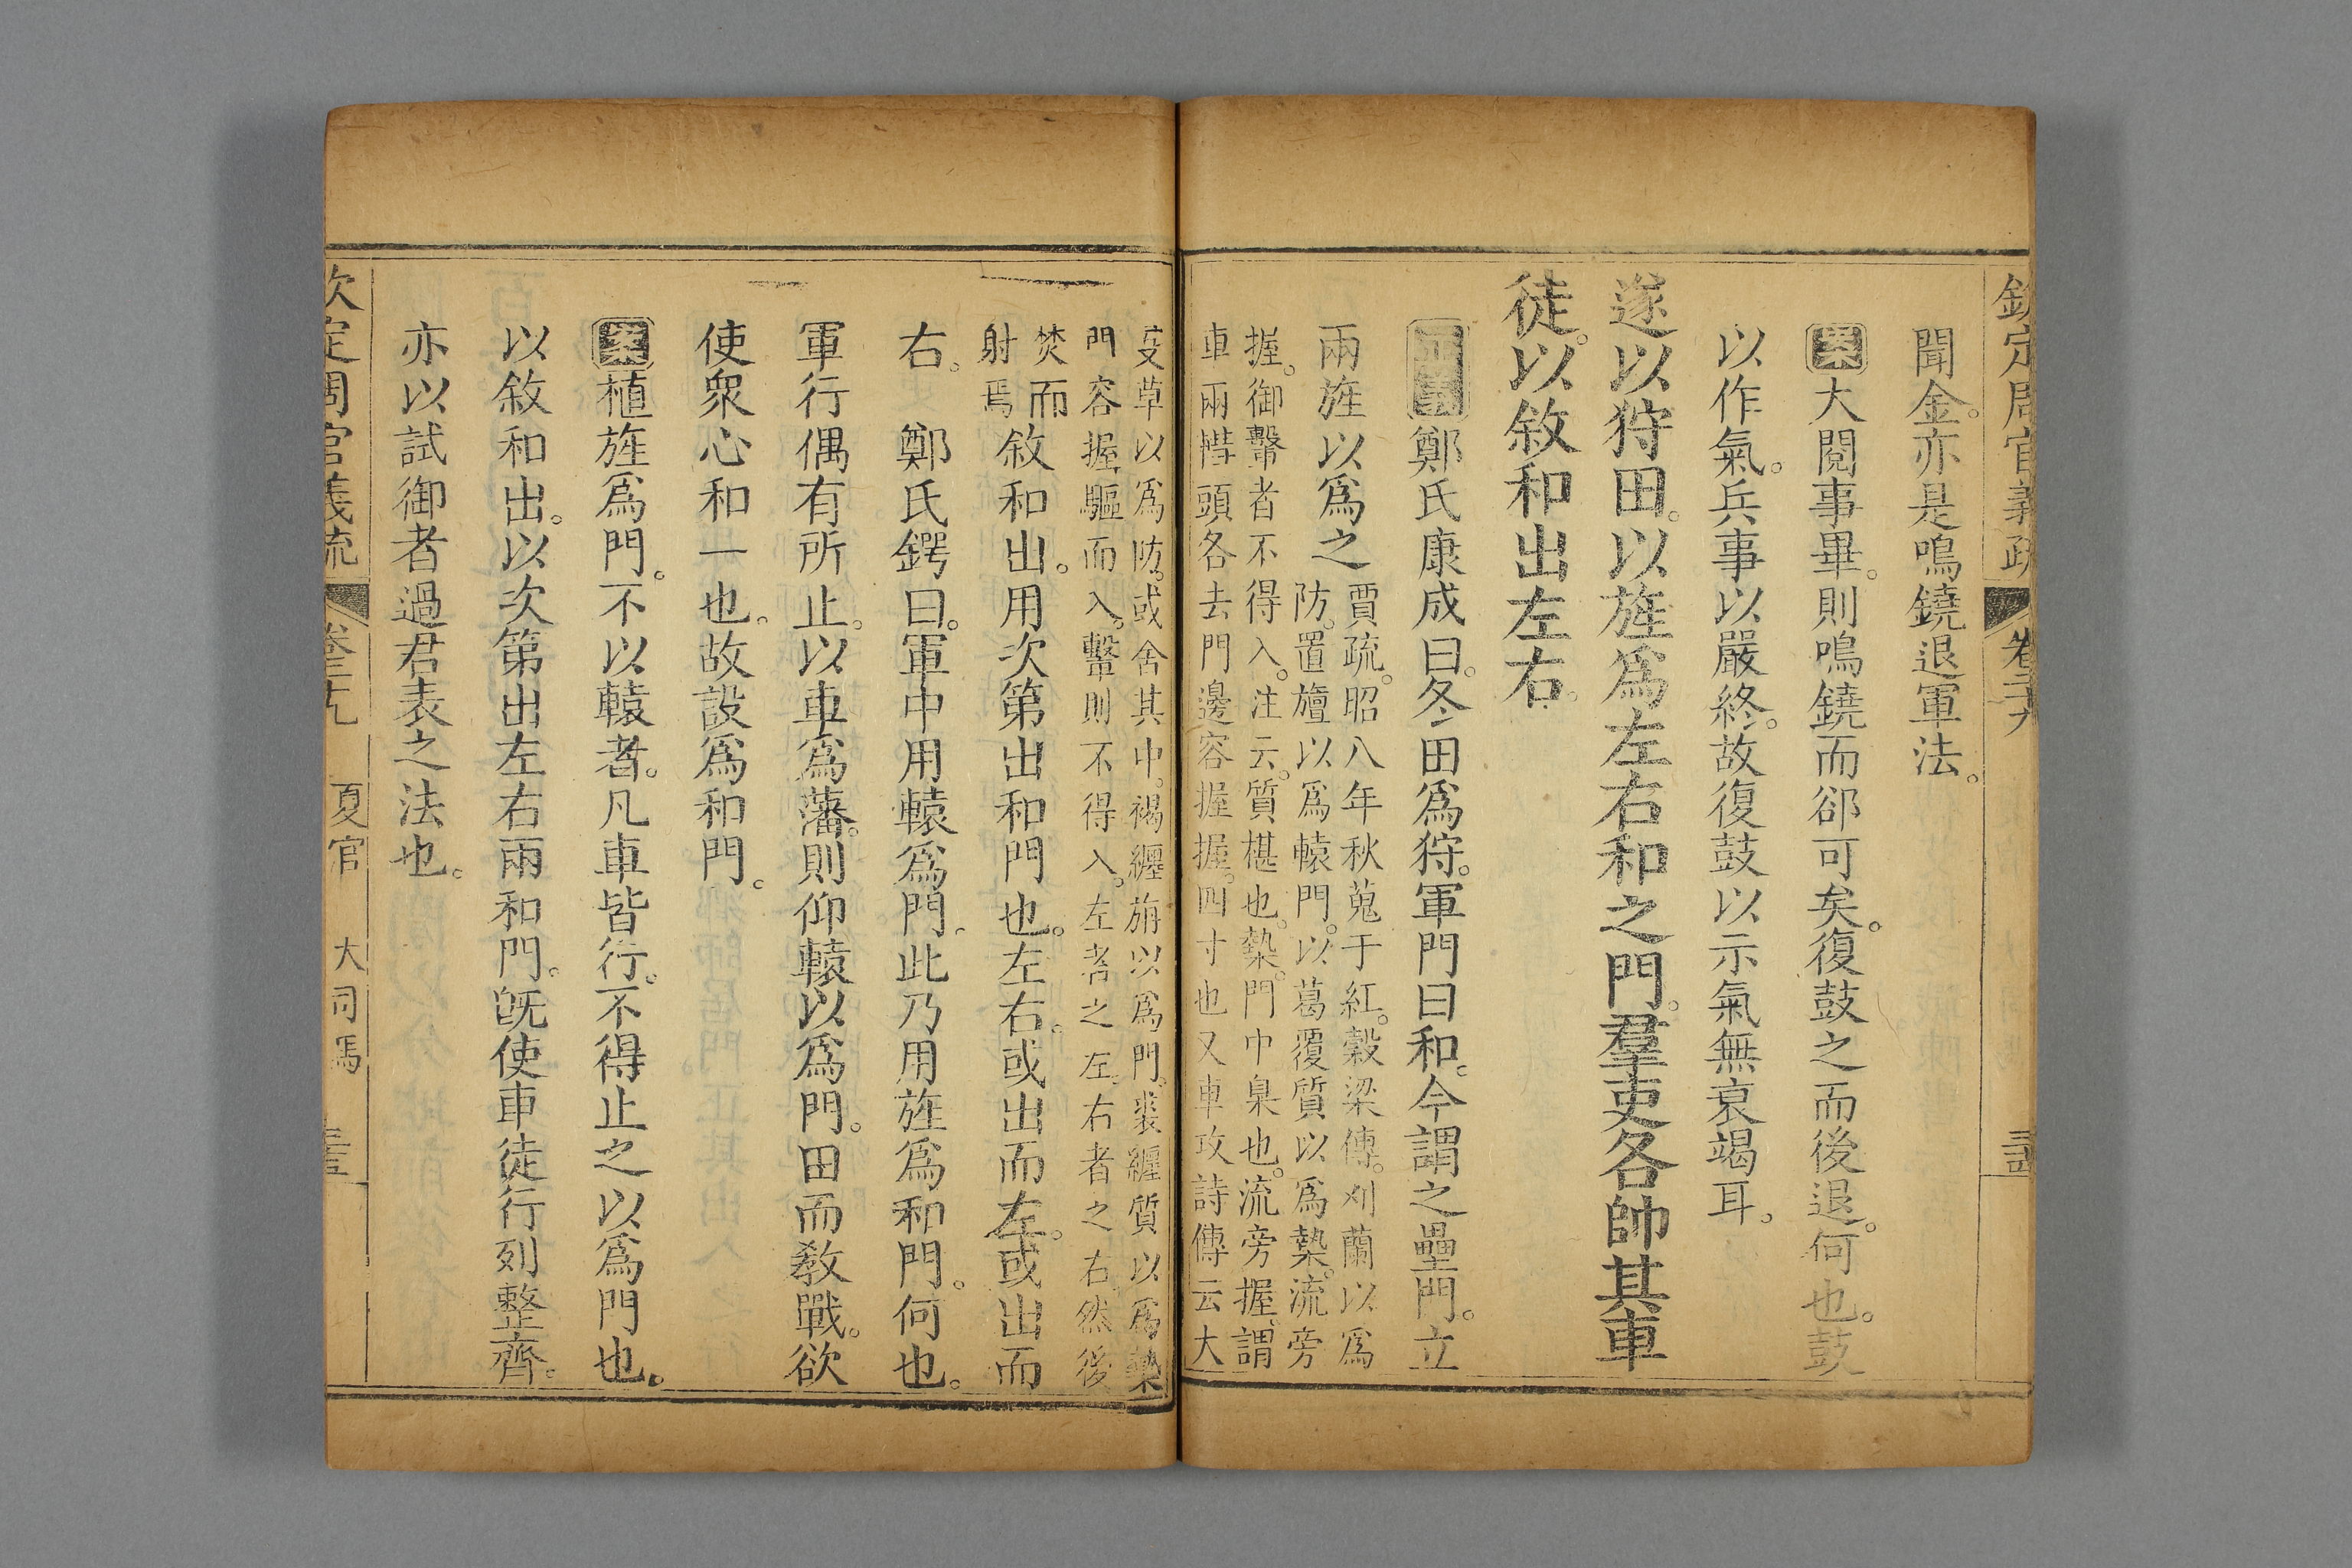 欽定周官義疏 卷二十九
聞金。亦是鳴鐃退軍法。
案大閱事畢。則鳴鐃而郤可矣。復鼓之而後退。何也。鼓
以作氣。兵事以嚴終。故復鼓以示氣無衰竭耳。
遂以狩田。以旌爲左右和之門。羣吏各帥其車
徒。以敘和出左右。
正義鄭氏康成曰。冬田爲狩。軍門曰和。今謂之壘門。立
兩旌以爲之
賈疏。昭八年秋蒐于紅。穀梁傳。刈蘭以爲
防。置旃以爲轅門。以葛覆質以爲槷。流旁
握。御轚者不得入。注云。質椹也。槷。門中臬也。流旁握。謂
車兩轊頭各去門邊容握。握。四寸也又車攻詩傳云大
芟草以爲防。或舍其中。褐纏旃以爲門。裘纏質以爲槷
門容握。驅而入。轚則不得入。左者之左。右者之右。然後
焚而
射焉
敘和出。用次第出和門也。左右。或出而左。或出而
右。 鄭氏鍔曰。軍中用轅爲門。此乃用旌爲和門。何也。
軍行偶有所止。以車爲藩。則仰轅以爲門。田而敎戰。欲
使衆心和一也。故設爲和門。
案植旌爲門。不以轅者。凡車皆行。不得止之以爲門也。
以敘和出。以次第出左右兩和門。旣使車徒行列整齊。
亦以試御者過君表之法也。
欽定周官義疏 卷二十九 夏官 大司馬